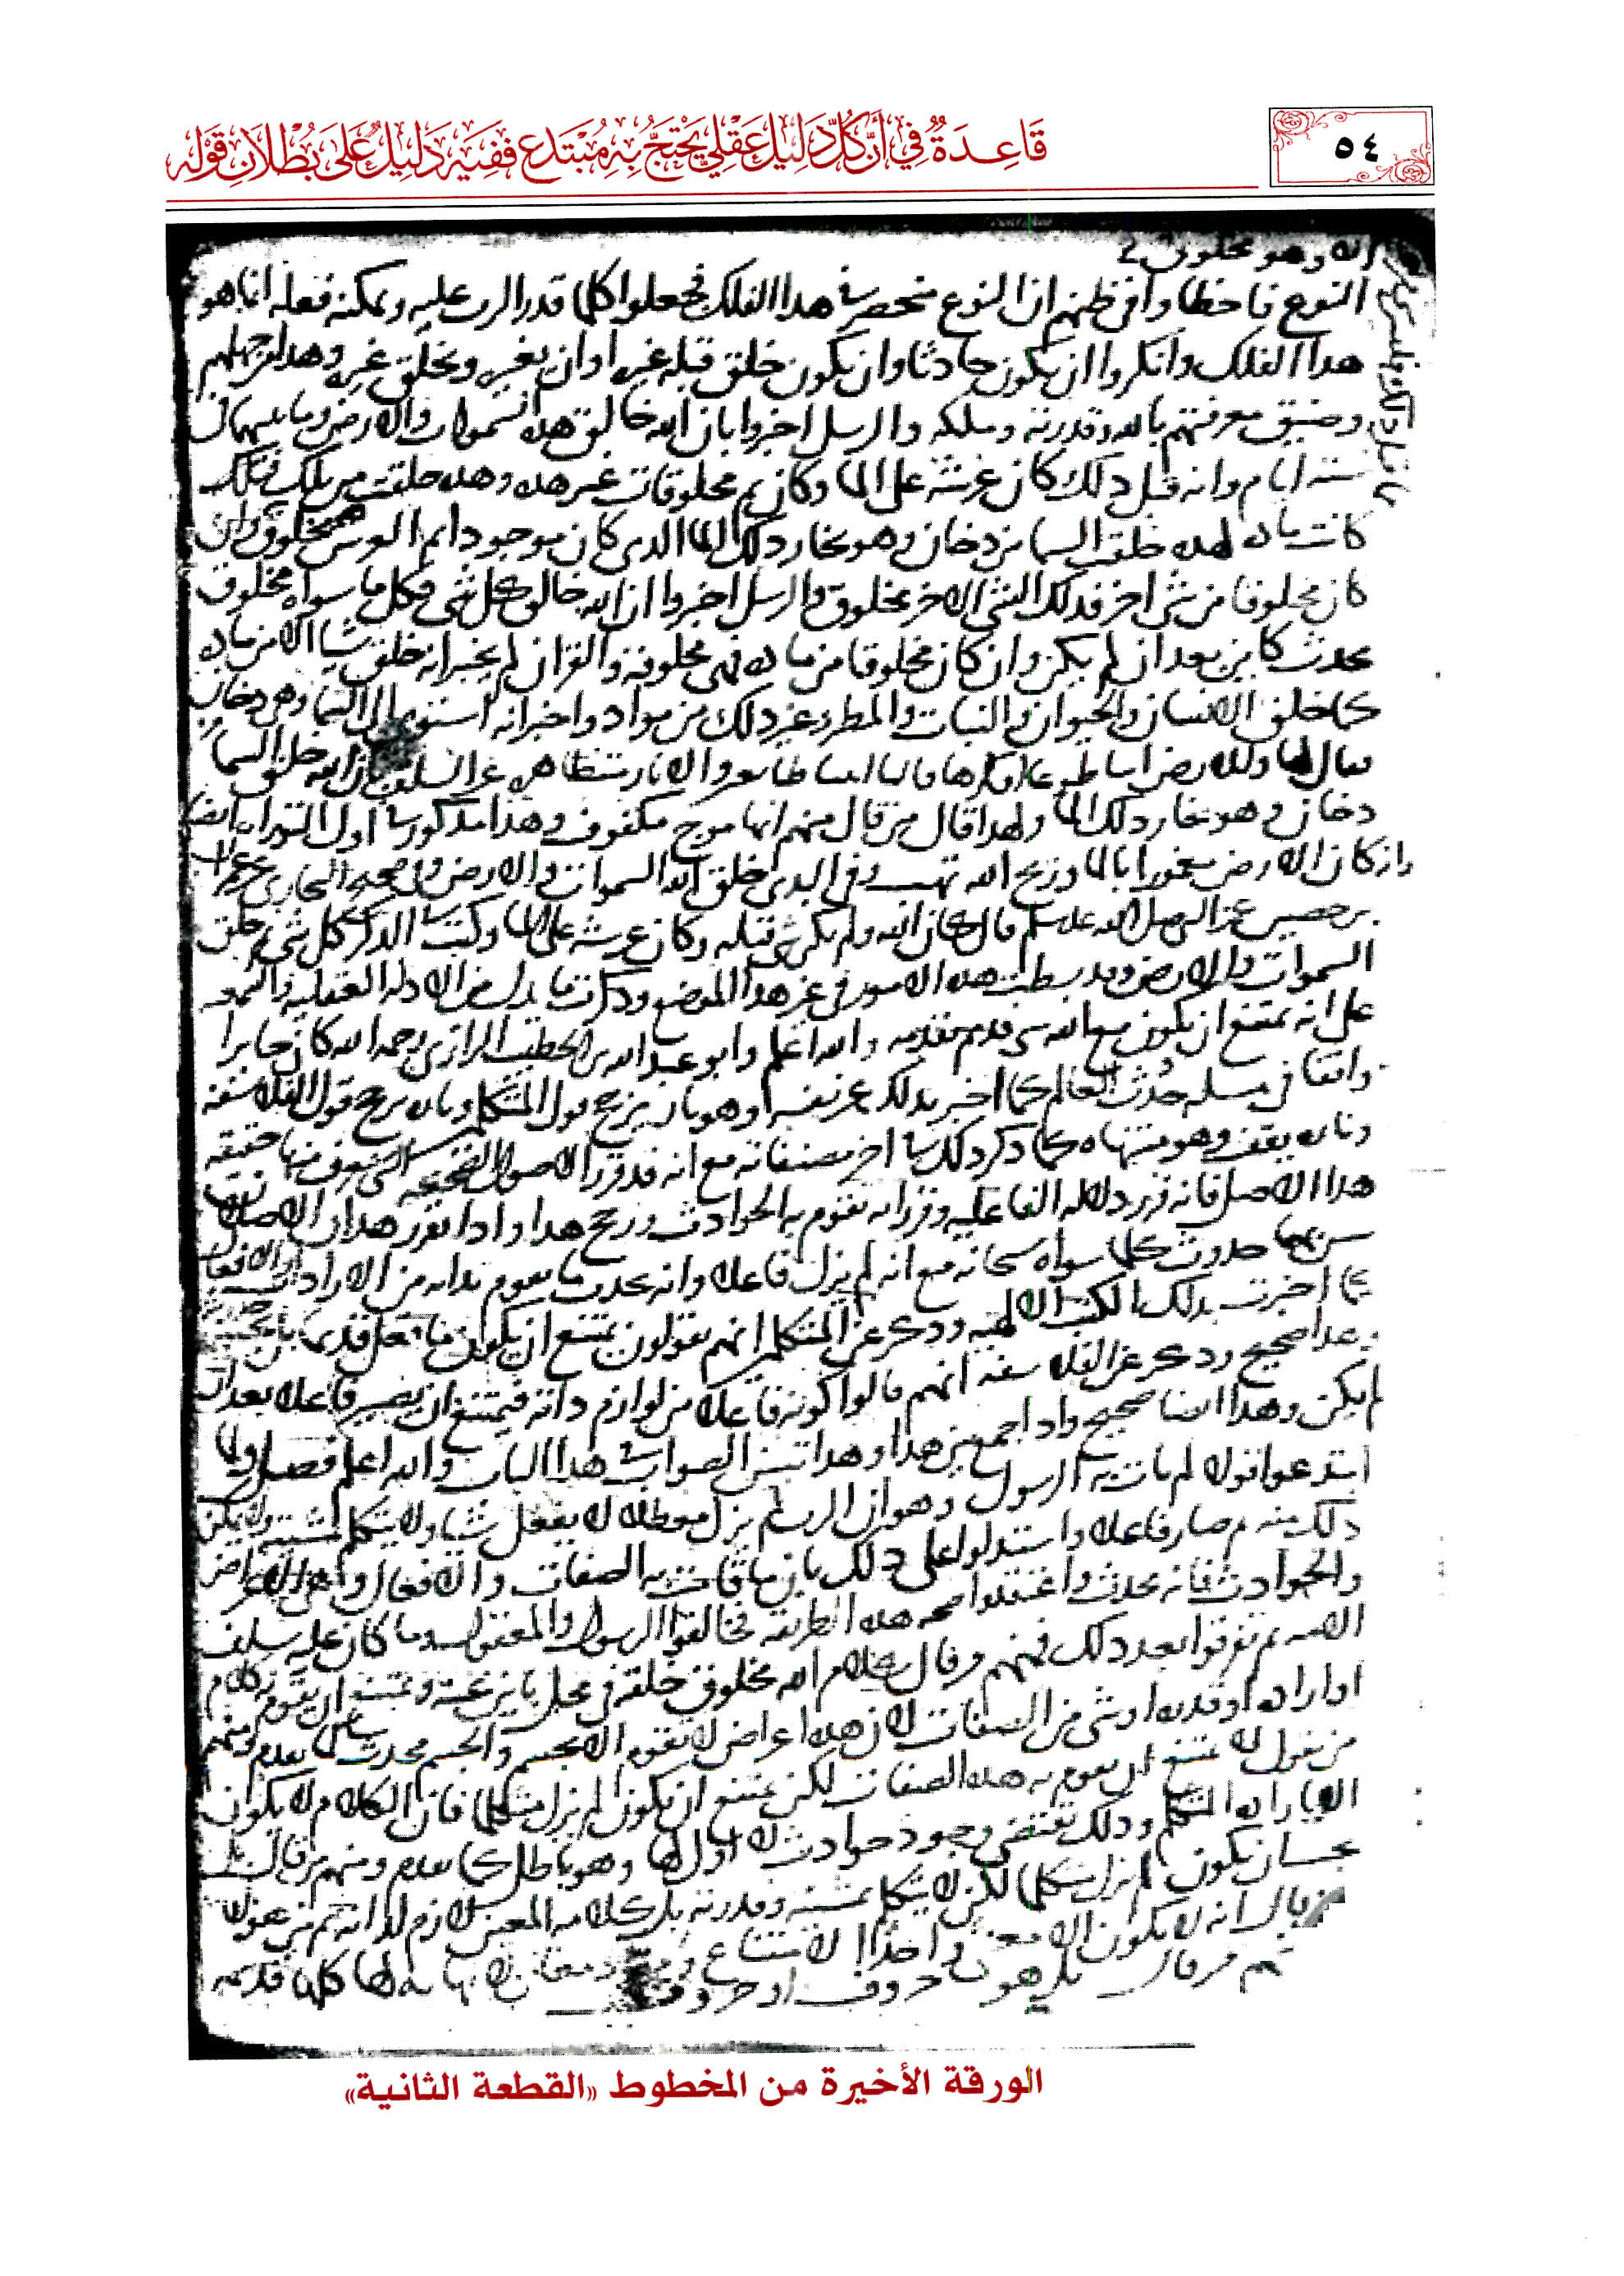 ٥٤
قَاعِدَةٌ فِي أَنَّ كُلَّ دَلِيلٍ عَقْلِيٍّ يَحْتَجُّ بِهِ مُبْتَدِعٌ فَفِيهِ دَلِيلٌ عَلَى بُطْلَانِ قَوْلِهِ
الله وهو مخلوق
النوع فاخطاوا في ظنهم ان النوع منحصر في هذا الفلك فجعلوا كلما قدر الرب عليه ويمكنه فعله انما هو
هذا الفلك وانكروا ان يكون حادثا وان يكون خلق قبله غيره او ان يغيره ويخلق غيره وهذا من جهلهم
وضيق معرفتهم بالله وقدرته وملكه والرسل اخبروا بان الله خالق هذه السموات والارض وما بينهما في
ستة ايام وانه قبل ذلك كان عرشه على الما وكان ثم مخلوقات غير هذه وهذه خلقت من تلك فتلك
كانت مادة لهذه خلق السما من دخان وهو بخار ذلك الما الذي كان موجودا ثم العرش مخلوق وان
كان مخلوقا من شي اخر فذلك الشي الاخر مخلوق والرسل اخبروا ان الله خالق كل شي وكل ما سواه مخلوق
محدث كاين بعد ان لم يكن وان كان مخلوقا من مادة فهي مخلوقة والقران لم يخبر انه خلق شيا الا من مادة
كما خلق الانسان والحيوان والنبات والمطر وغير ذلك من مواد واخبر انه استوى الى السما وهي دخان
فقال لها وللارض ائتيا طوعا او كرها قالتا اتينا طايعين والاثار متظاهرة عن السلف بان الله خلق السما
دخان وهو بخار ذلك الما ولهذا قال من قال منهم انها موج مكفوف وهذا مذكور في اول التوراة ايضا
وان كان الارض مغمورا بالما وريح الله تهب وفي البدي خلق الله السموات والارض وفي صحيح البخاري عن عمران
بن حصين عن النبي صلى الله عليه وسلم قال كان الله ولم يكن شي قبله وكان عرشه على الما وكتب في الذكر كل شي ثم خلق
السموات والارض وقد بسطت هذه الامور في غير هذا الموضع وذكرت ما يدل من الادلة العقلية والسمعية
على انه يمتنع ان يكون مع الله شي قديم بقدمه والله اعلم وابو عبد الله بن الخطيب الرازي رحمه الله كان حايرا
واقفا في مسلة حدث العالم كما اخبر بذلك عن نفسه وهو تارة يرجح قول المتكلمين وتارة يرجح قول الفلاسفة
وتارة يقف وهو منتهاه كما ذكر ذلك في اخر مصنفاته مع انه قد قرر الاصول الصحيحة التي يعرف منها حقيقة
هذا الاصل فانه قرر دلالة الفاعلية وقرر انه تقوم به الحوادث ورجح هذا واذا تقرر هذان الاصلان
تبين بهما حدوث كلما سواه سبحانه مع انه لم يزل فاعلا وانه يحدث ما يقوم بذاته من الارادات والافعال
كما اخبرت بذلك الكتب الالهية وذكر عن المتكلمين انهم يقولون يمتنع ان يكون ما فعل قديما
هذا صحيح وذكر عن الفلاسفة انهم قالوا كونه فاعلا من لوازم ذاته فيمتنع ان يصير فاعلا بعد ان
لم يكن وهذا ايضا صحيح واذا جمع بين هذا وهذا تبين الصواب في هذا الباب والله اعلم فصل ولما
ابتدعوا قولا لم يات به الرسول وهو ان الرب لم يزل معطلا لا يفعل شيا ولا يتكلم بمشيته ولا يمكن
ذلك منه ثم صار فاعلا واستدلوا على ذلك بان ما قامت به الصفات والافعال وهي الاعراض
والحوادث فانه محدث واعتقدوا صحة هذه الطريقة فخالفوا الرسول والمعقول وما كان عليه سلف
الامة ثم تفرقوا بعد ذلك فمنهم من قال كلام الله مخلوق خلقه في محل باين عنه ويمتنع ان يقوم به كلام
او ارادة او قدرة او شي من الصفات لان هذه اعراض لا تقوم الا بجسم والجسم محدث كما تقدم ومنهم
من يقول لا يمتنع ان يقوم به هذه الصفات لكن يمتنع ان يكون لم يزل متكلما فان الكلام لا يكون
الا بارادة المتكلم وذلك يقتضي وجود حوادث لا اول لها وهو باطل كما تقدم ومنهم من قال بل
يجب ان يكون لم يزل متكلما لكن لا يتكلم بمشيته وقدرته بل كلامه المعين لازم لذاته ثم من هولا
من قال انه لا يكون الا معنى واحدا لامتناع معان لا نهاية لها كلها قديمة
ثم من قال بل هو حروف او حروف
الورقة الأخيرة من المخطوط «القطعة الثانية»